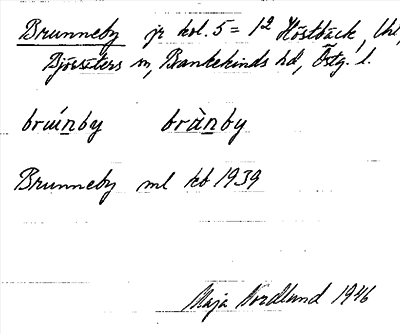 Brunneby jr kol. 5 = 12 Höstbäck,
Björsäters sn, Bankekinds hd, Östg. l.
brúnby brànby
Brunneby ml kb 1939
Maja Nordlund 1946